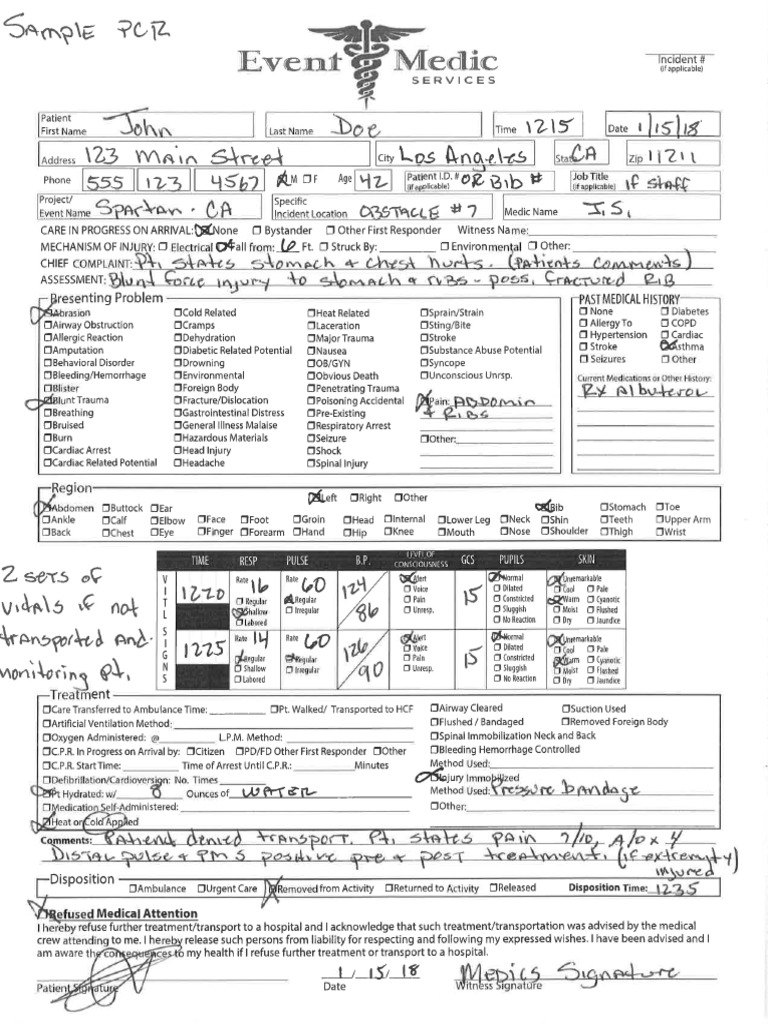 SAMPLE PCR
Event Medic
SERVICES
Incident #
(if applicable)
Patient First Name John Last Name Doe Time 1215 Date 1/15/18
Address 123 Main Street City Los Angeles State CA Zip 11211
Phone 555 123 4567 ☒M ☐F Age 42 Patient I.D. # (if applicable) OR Bib # Job Title (if applicable) if STAFF
Project/ Event Name SPARTAN - CA Specific Incident Location OBSTACLE #7 Medic Name J.S.
CARE IN PROGRESS ON ARRIVAL: ☒None ☐Bystander ☐Other First Responder Witness Name:
MECHANISM OF INJURY: ☐Electrical ☒Fall from: 6 Ft. ☐Struck By: ☐Environmental ☐Other:
CHIEF COMPLAINT: Pt. States stomach & chest hurts. (Patients comments)
ASSESSMENT: Blunt force injury to stomach & ribs - poss. fractured RIB
Presenting Problem
☒Abrasion ☐Cold Related ☐Heat Related ☐Sprain/Strain
☐Airway Obstruction ☐Cramps ☐Laceration ☐Sting/Bite
☐Allergic Reaction ☐Dehydration ☐Major Trauma ☐Stroke
☐Amputation ☐Diabetic Related Potential ☐Nausea ☐Substance Abuse Potential
☐Behavioral Disorder ☐Drowning ☐OB/GYN ☐Syncope
☐Bleeding/Hemorrhage ☐Environmental ☐Obvious Death ☐Unconscious Unrsp.
☐Blister ☐Foreign Body ☐Penetrating Trauma
☒Blunt Trauma ☐Fracture/Dislocation ☐Poisoning Accidental ☒Pain: ABDOMIN
☐Breathing ☐Gastrointestinal Distress ☐Pre-Existing & RIBS
☐Bruised ☐General Illness Malaise ☐Respiratory Arrest
☐Burn ☐Hazardous Materials ☐Seizure ☐Other:
☐Cardiac Arrest ☐Head Injury ☐Shock
☐Cardiac Related Potential ☐Headache ☐Spinal Injury
PAST MEDICAL HISTORY
☐None ☐Diabetes
☐Allergy To ☐COPD
☐Hypertension ☐Cardiac
☐Stroke ☒Asthma
☐Seizures ☐Other
Current Medications or Other History:
RX Albuterol
Region
☒Left ☐Right ☐Other
☒Abdomen ☐Buttock ☐Ear ☒Bib ☐Stomach ☐Toe
☐Ankle ☐Calf ☐Elbow ☐Face ☐Foot ☐Groin ☐Head ☐Internal ☐Lower Leg ☐Neck ☐Shin ☐Teeth ☐Upper Arm
☐Back ☐Chest ☐Eye ☐Finger ☐Forearm ☐Hand ☐Hip ☐Knee ☐Mouth ☐Nose ☐Shoulder ☐Thigh ☐Wrist
2 sets of
vitals if not
transported and
monitoring pt.
VITL SIGNS
TIME RESP PULSE B.P. LEVEL OF CONSCIOUSNESS GCS PUPILS SKIN
1220 Rate 16 Rate 60 124/86 ☒Alert 15 ☒Normal ☒Unremarkable
☐Regular ☒Regular ☐Voice ☐Dilated ☐Cool ☐Pale
☒Shallow ☐Irregular ☐Pain ☐Constricted ☒Warm ☐Cyanotic
☐Labored ☐Unresp. ☐Sluggish ☐Moist ☐Flushed
☐No Reaction ☐Dry ☐Jaundice
1225 Rate 14 Rate 60 126/90 ☒Alert 15 ☒Normal ☒Unremarkable
☒Regular ☒Regular ☐Voice ☐Dilated ☐Cool ☐Pale
☐Shallow ☐Irregular ☐Pain ☐Constricted ☒Warm ☐Cyanotic
☐Labored ☐Unresp. ☐Sluggish ☐Moist ☐Flushed
☐No Reaction ☐Dry ☐Jaundice
Treatment
☐Care Transferred to Ambulance Time: ☐Pt. Walked/ Transported to HCF
☐Artificial Ventilation Method:
☐Oxygen Administered: @ L.P.M. Method:
☐C.P.R. In Progress on Arrival by: ☐Citizen ☐PD/FD Other First Responder ☐Other
☐C.P.R. Start Time: Time of Arrest Until C.P.R.: Minutes
☐Defibrillation/Cardioversion: No. Times
☒Pt Hydrated: w/ 8 Ounces of WATER
☐Medication Self-Administered:
☒Heat or Cold Applied
☐Airway Cleared ☐Suction Used
☐Flushed / Bandaged ☐Removed Foreign Body
☐Spinal Immobilization Neck and Back
☐Bleeding Hemorrhage Controlled
Method Used:
☒Injury Immobilized
Method Used: Pressure bandage
☐Other:
Comments: Patient denied transport. Pt. states pain 7/10, A/O x 4
Distal pulse & PMS positive pre & post treatment. (if extremity)
injured
Disposition
☐Ambulance ☐Urgent Care ☒Removed from Activity ☐Returned to Activity ☐Released Disposition Time: 1235
☒Refused Medical Attention
I hereby refuse further treatment/transport to a hospital and I acknowledge that such treatment/transportation was advised by the medical
crew attending to me. I hereby release such persons from liability for respecting and following my expressed wishes. I have been advised and I
am aware the consequences to my health if I refuse further treatment or transport to a hospital.
1/15/18 Medics Signature
Patient Signature Date Witness Signature